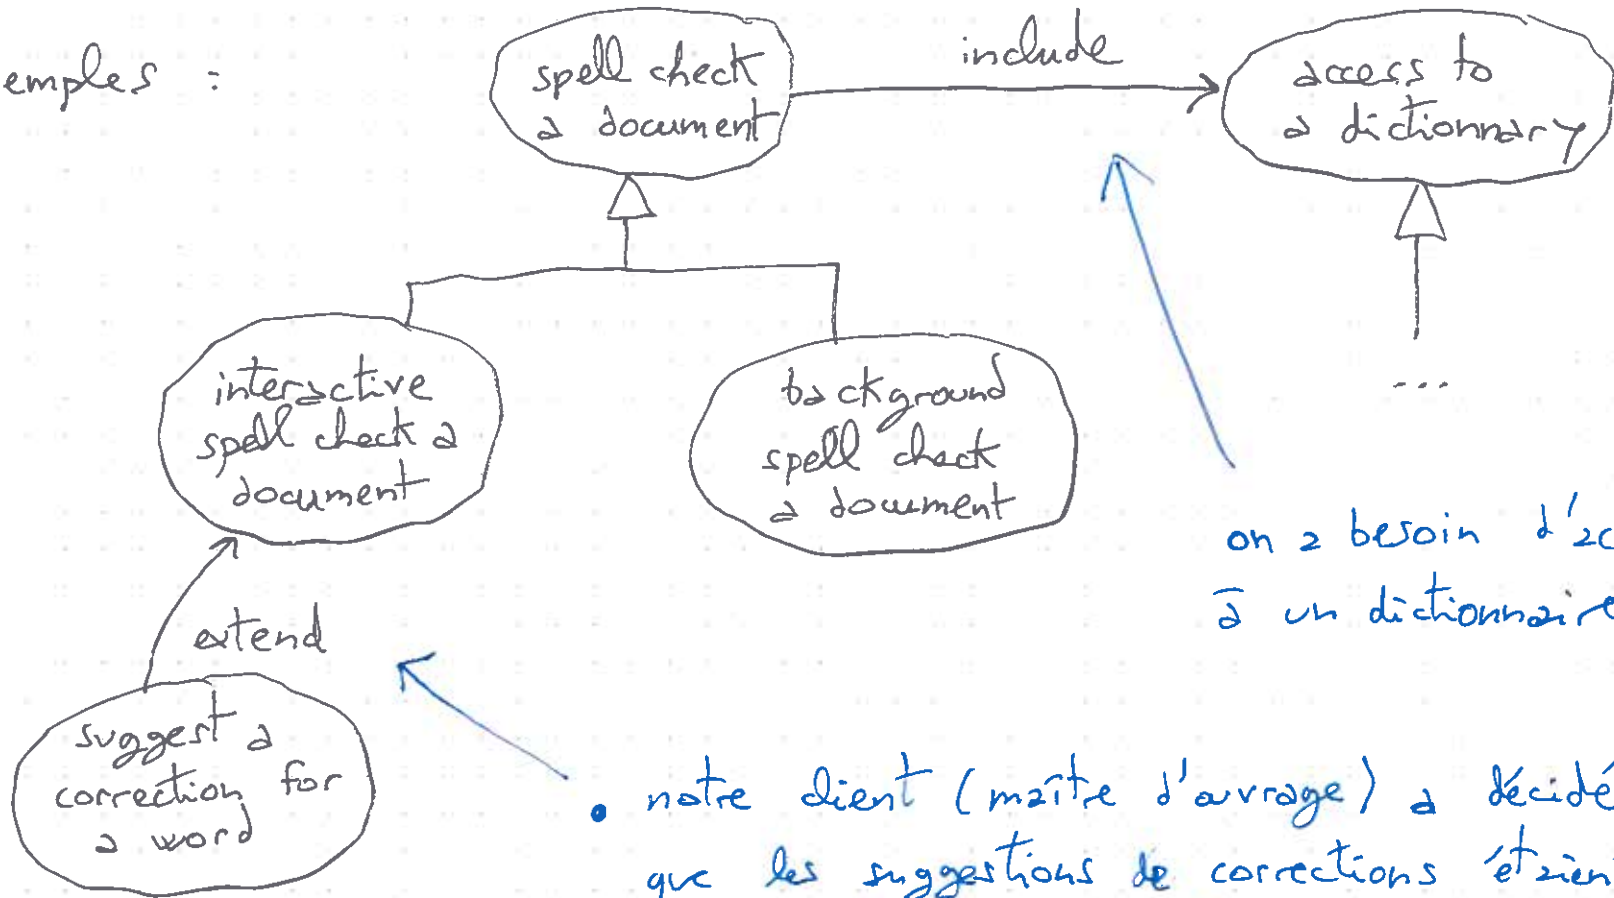 emples :
spell check
a document
include
access to
a dictionnary
interactive
spell check a
document
background
spell check
a document
...
extend
suggest a
correction for
a word
on a besoin d'ac
à un dictionnaire
• notre client (maître d'ouvrage) a décidé
que les suggestions de corrections étaien